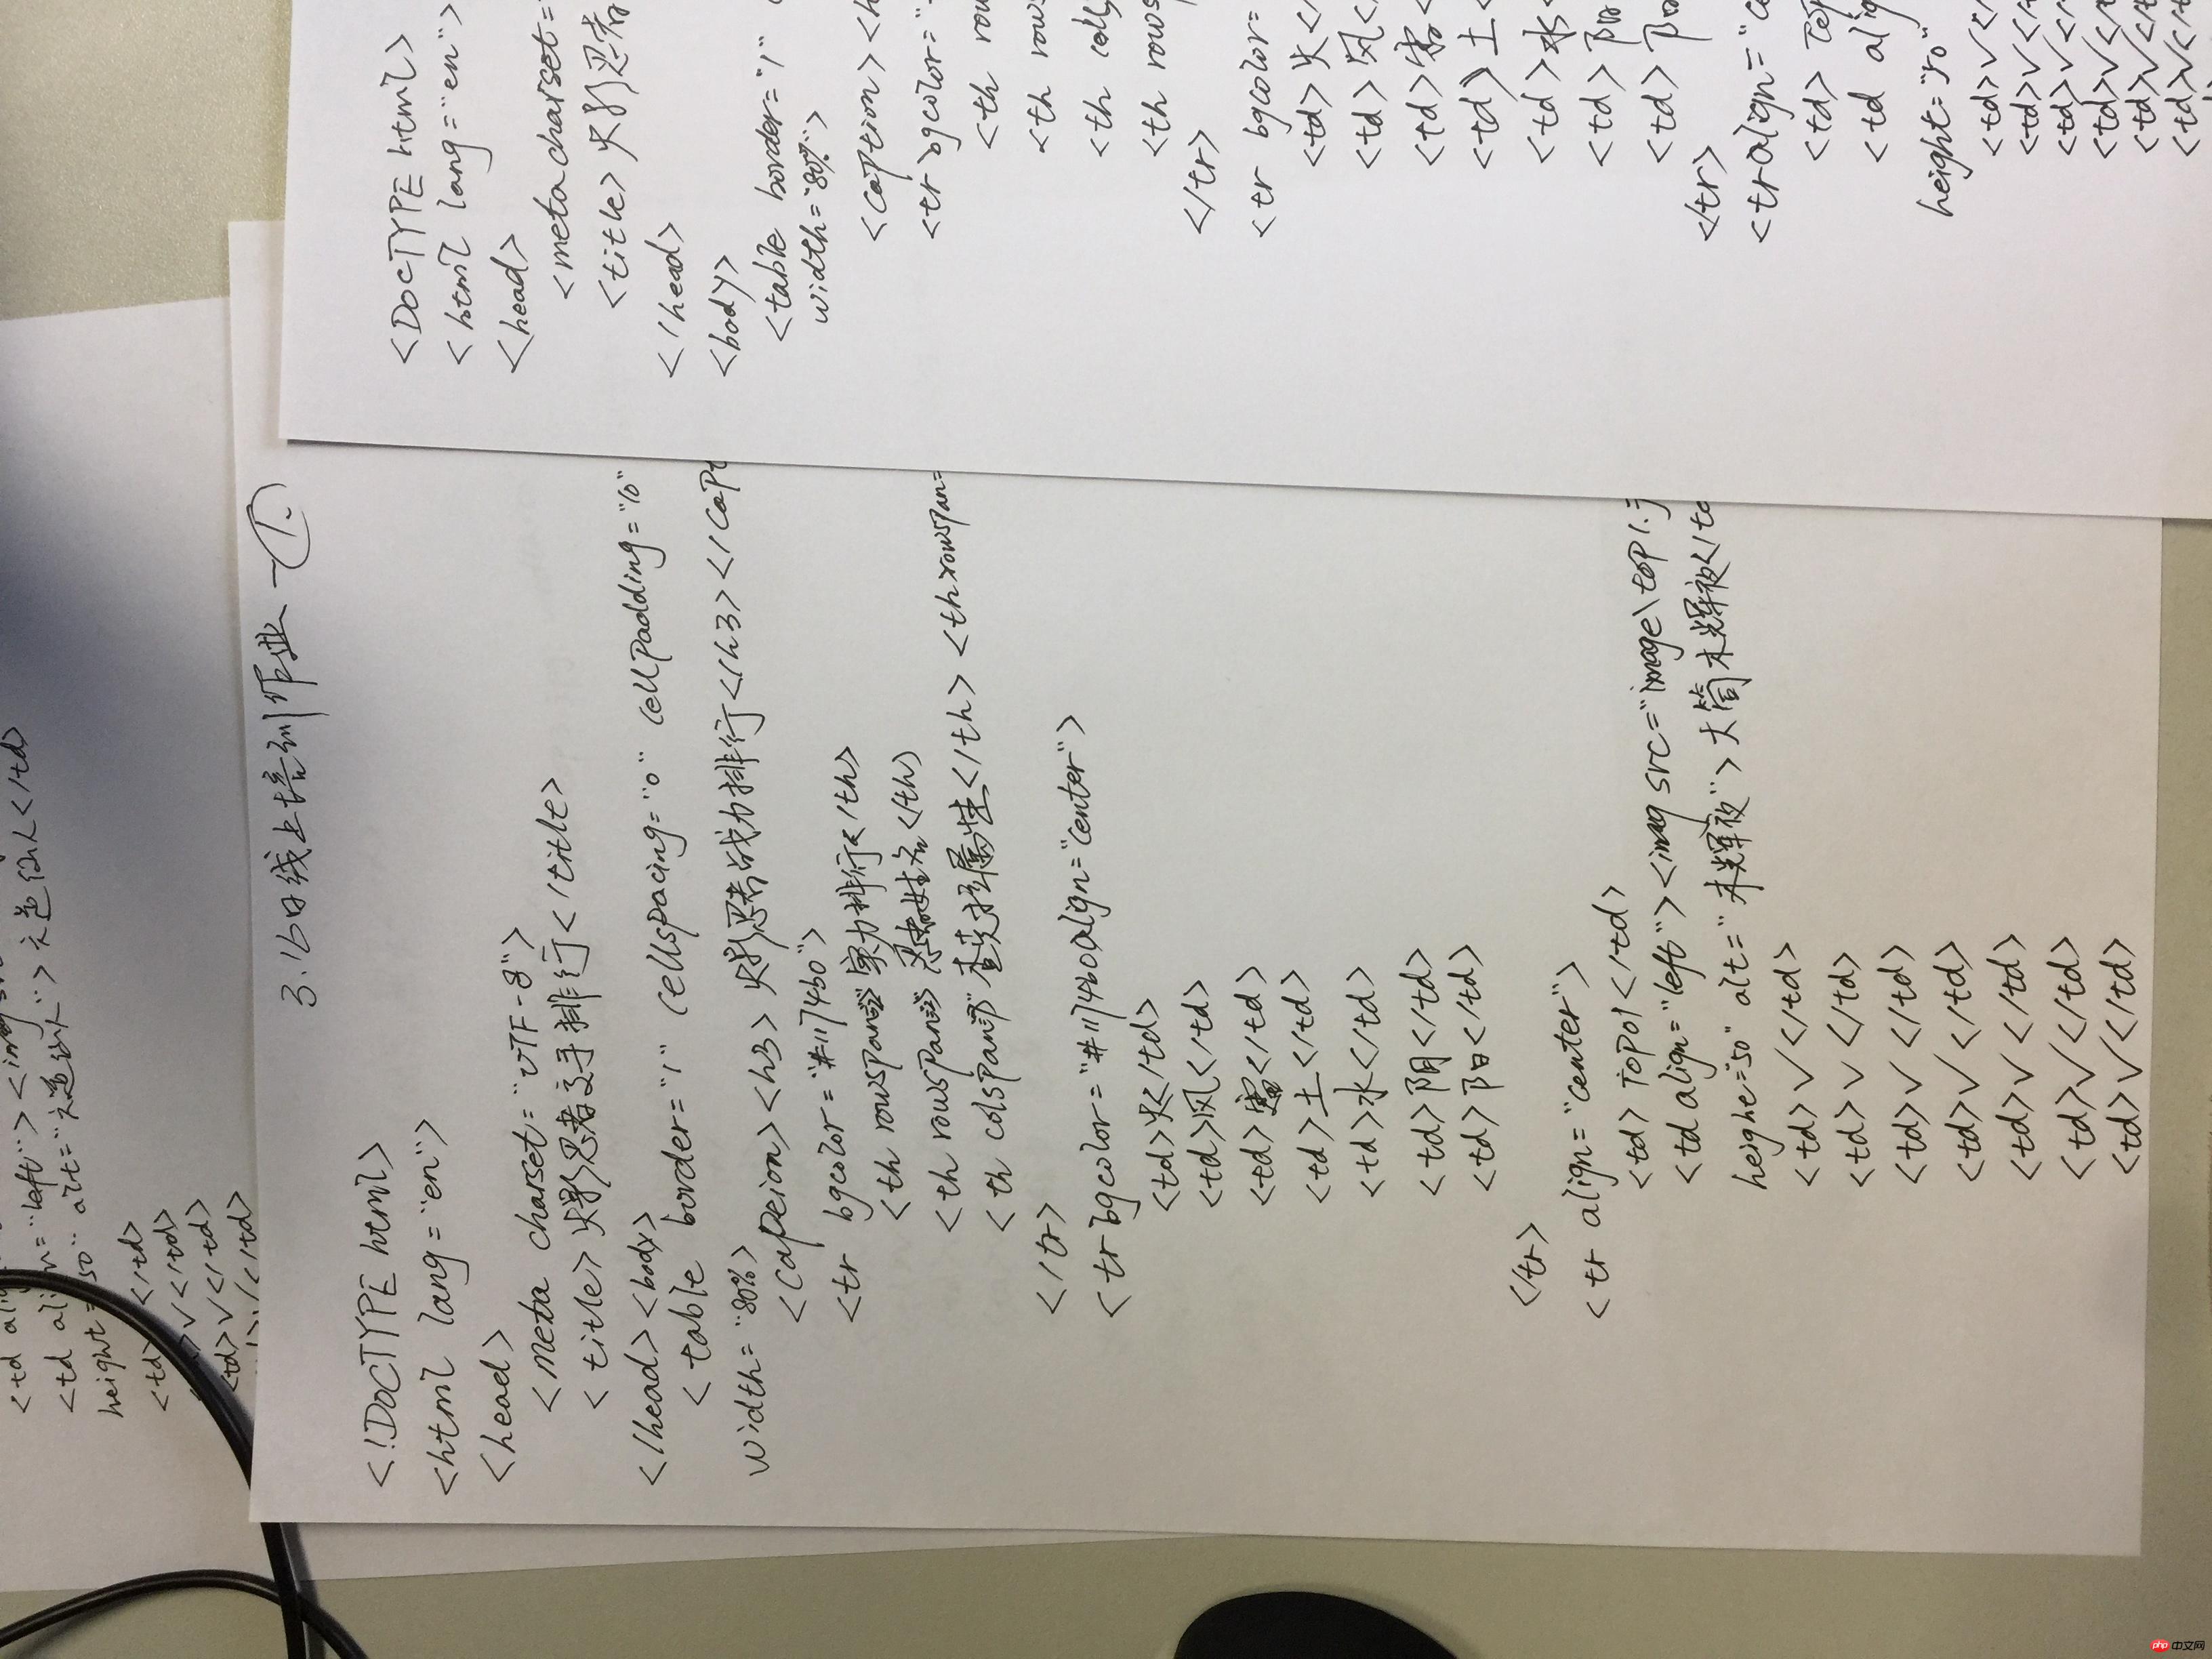 3.16日线上培训作业 — 1.
<!DOCTYPE html>
<html lang="en">
<head>
<meta charset="UTF-8">
<title>火影忍者高手排行</title>
</head><body>
<table border="1" cellspacing="0" cellpadding="10"
width="80%>
<capeion><h3>火影忍者战力排行</h3></capt
<tr bgcolor="#1174b0">
<th rowspan= 实力排行</th>
<th rowspan= 忍者姓名</th>
<th colspan="7"查克拉属性</th><th rowspan=
</tr>
<tr bgcolor="#1174b0align="center">
<td>火</td>
<td>风</td>
<td>雷</td>
<td>土</td>
<td>水</td>
<td>阴</td>
<td>阳</td>
</tr>
<tr align="center">
<td>TOP01</td>
<td align="left"><imag src="image\top1.j
heighe="50" alt="木辉夜">大筒木辉夜</td
<td>√</td>
<td>√</td>
<td>√</td>
<td>√</td>
<td>√</td>
<td>√</td>
<td>√</td>
<DOCTYPE html>
<html lang="en">
<head>
<meta charset=
<title>火影忍者
</head>
<body>
<table border="1"
width="80%">
<caption><h
<tr bgcolor="
<th row
<th rows
<th cols
<th rows
</tr>
<tr bgcolor=
<td>火</
<td>风<
<td>雷<
<td>土<
<td>水<
<td>阴
<td>阳
</tr>
<tr align="ce
<td>TOP
<td alig
height="50"
<td>√</
<td>√</t
<td>√</t
<td>√</t
<td>√</t
<td>√</t
<td alig
<td align="left"><img
height="50" alt="六道仙人">六道仙人</td>
<td>√</td>
<td>√</td>
<td>√</td>
<td>√</td>
php 中文网